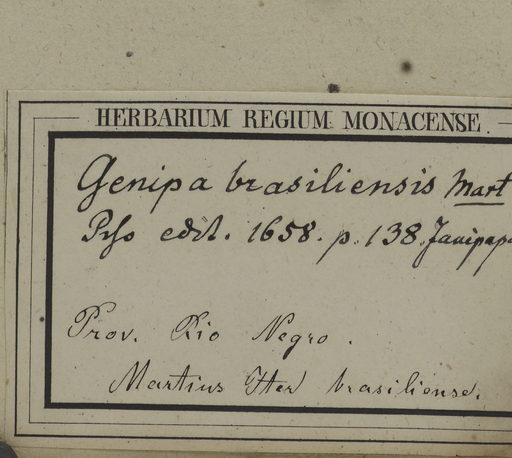 HERBARIUM REGIUM MONACENSE.
Genipa brasiliensis Mart
Piso edit. 1658. p. 138. Janipapa
Prov. Rio Negro.
Martius Iter brasiliense.